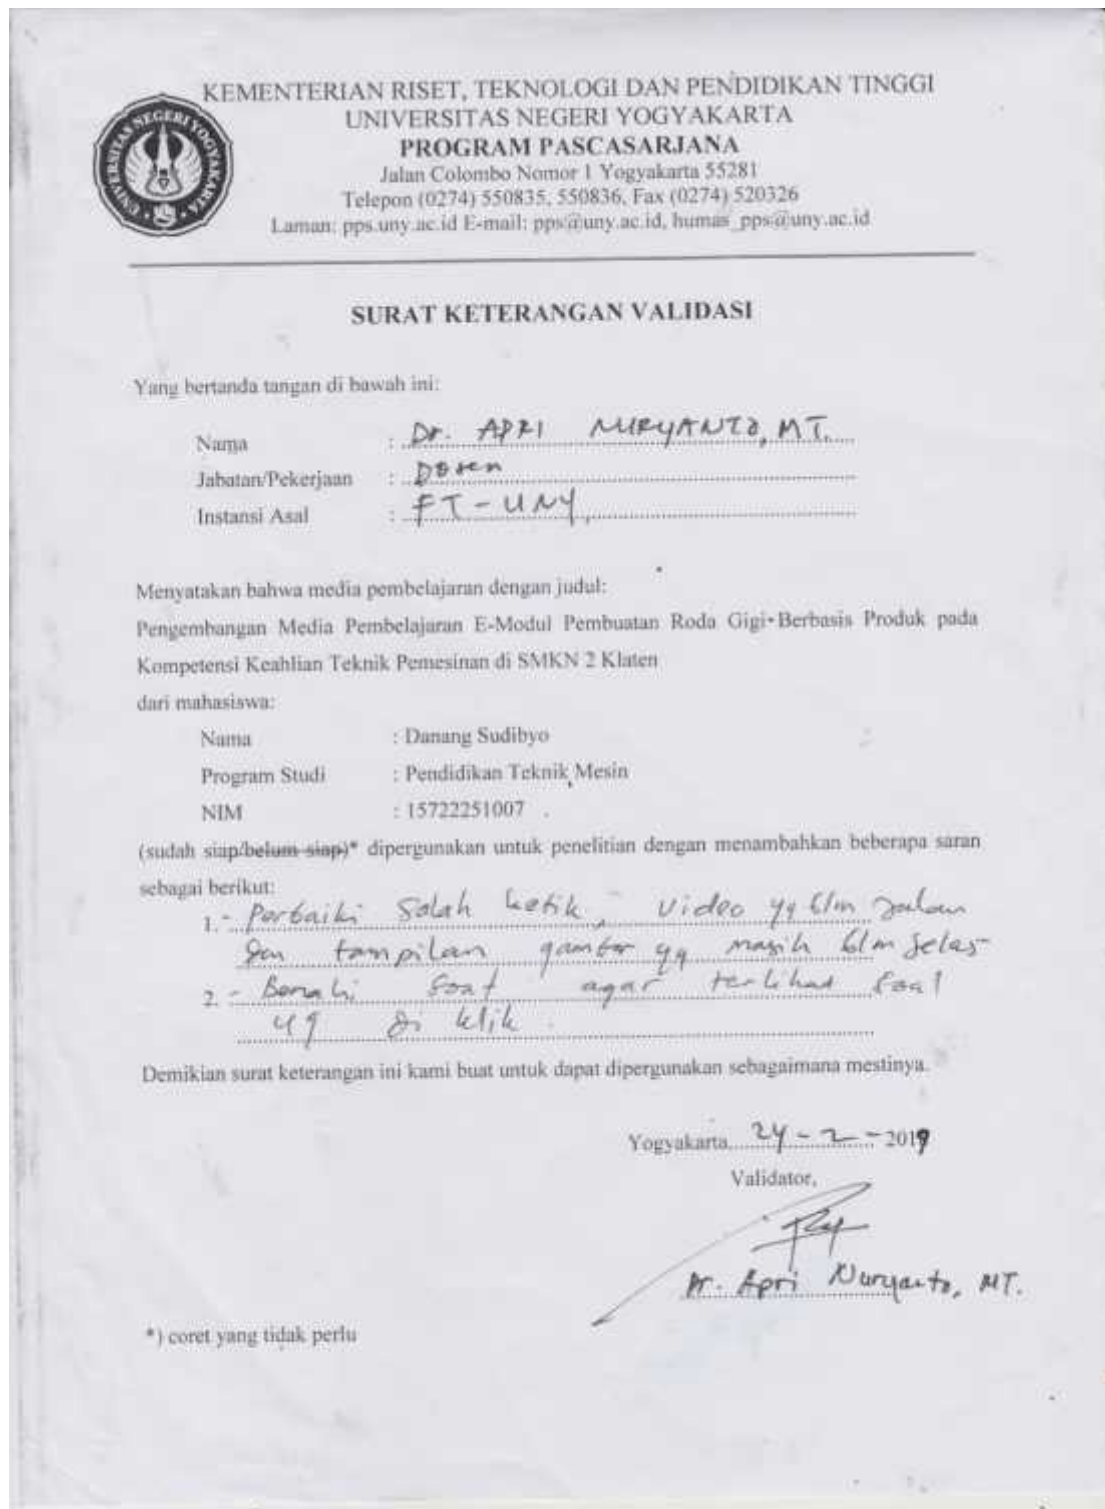 KEMENTERIAN RISET, TEKNOLOGI DAN PENDIDIKAN TINGGI
UNIVERSITAS NEGERI YOGYAKARTA
PROGRAM PASCASARJANA
Jalan Colombo Nomor 1 Yogyakarta 55281
Telepon (0274) 550835, 550836, Fax (0274) 520326
Laman: pps.uny.ac.id E-mail: pps@uny.ac.id, humas_pps@uny.ac.id
UNIVERSITAS NEGERI YOGYAKARTA
SURAT KETERANGAN VALIDASI
Yang bertanda tangan di bawah ini:
Nama : Dr. APRI NURYANTO, MT.
Jabatan/Pekerjaan : Dosen
Instansi Asal : FT - UNY,
Menyatakan bahwa media pembelajaran dengan judul:
Pengembangan Media Pembelajaran E-Modul Pembuatan Roda Gigi Berbasis Produk pada
Kompetensi Keahlian Teknik Pemesinan di SMKN 2 Klaten
dari mahasiswa:
Nama : Danang Sudibyo
Program Studi : Pendidikan Teknik Mesin
NIM : 15722251007
(sudah siap/belum siap)* dipergunakan untuk penelitian dengan menambahkan beberapa saran
sebagai berikut:
1. - Perbaiki Salah ketik, video yg blm jalan
dan tampilan gambar yg masih blm jelas
2. - Benahi soal agar terlihat soal
yg di klik.
Demikian surat keterangan ini kami buat untuk dapat dipergunakan sebagaimana mestinya.
Yogyakarta, 24 - 2 - 2019
Validator,
Dr. Apri Nuryanto, MT.
*) coret yang tidak perlu